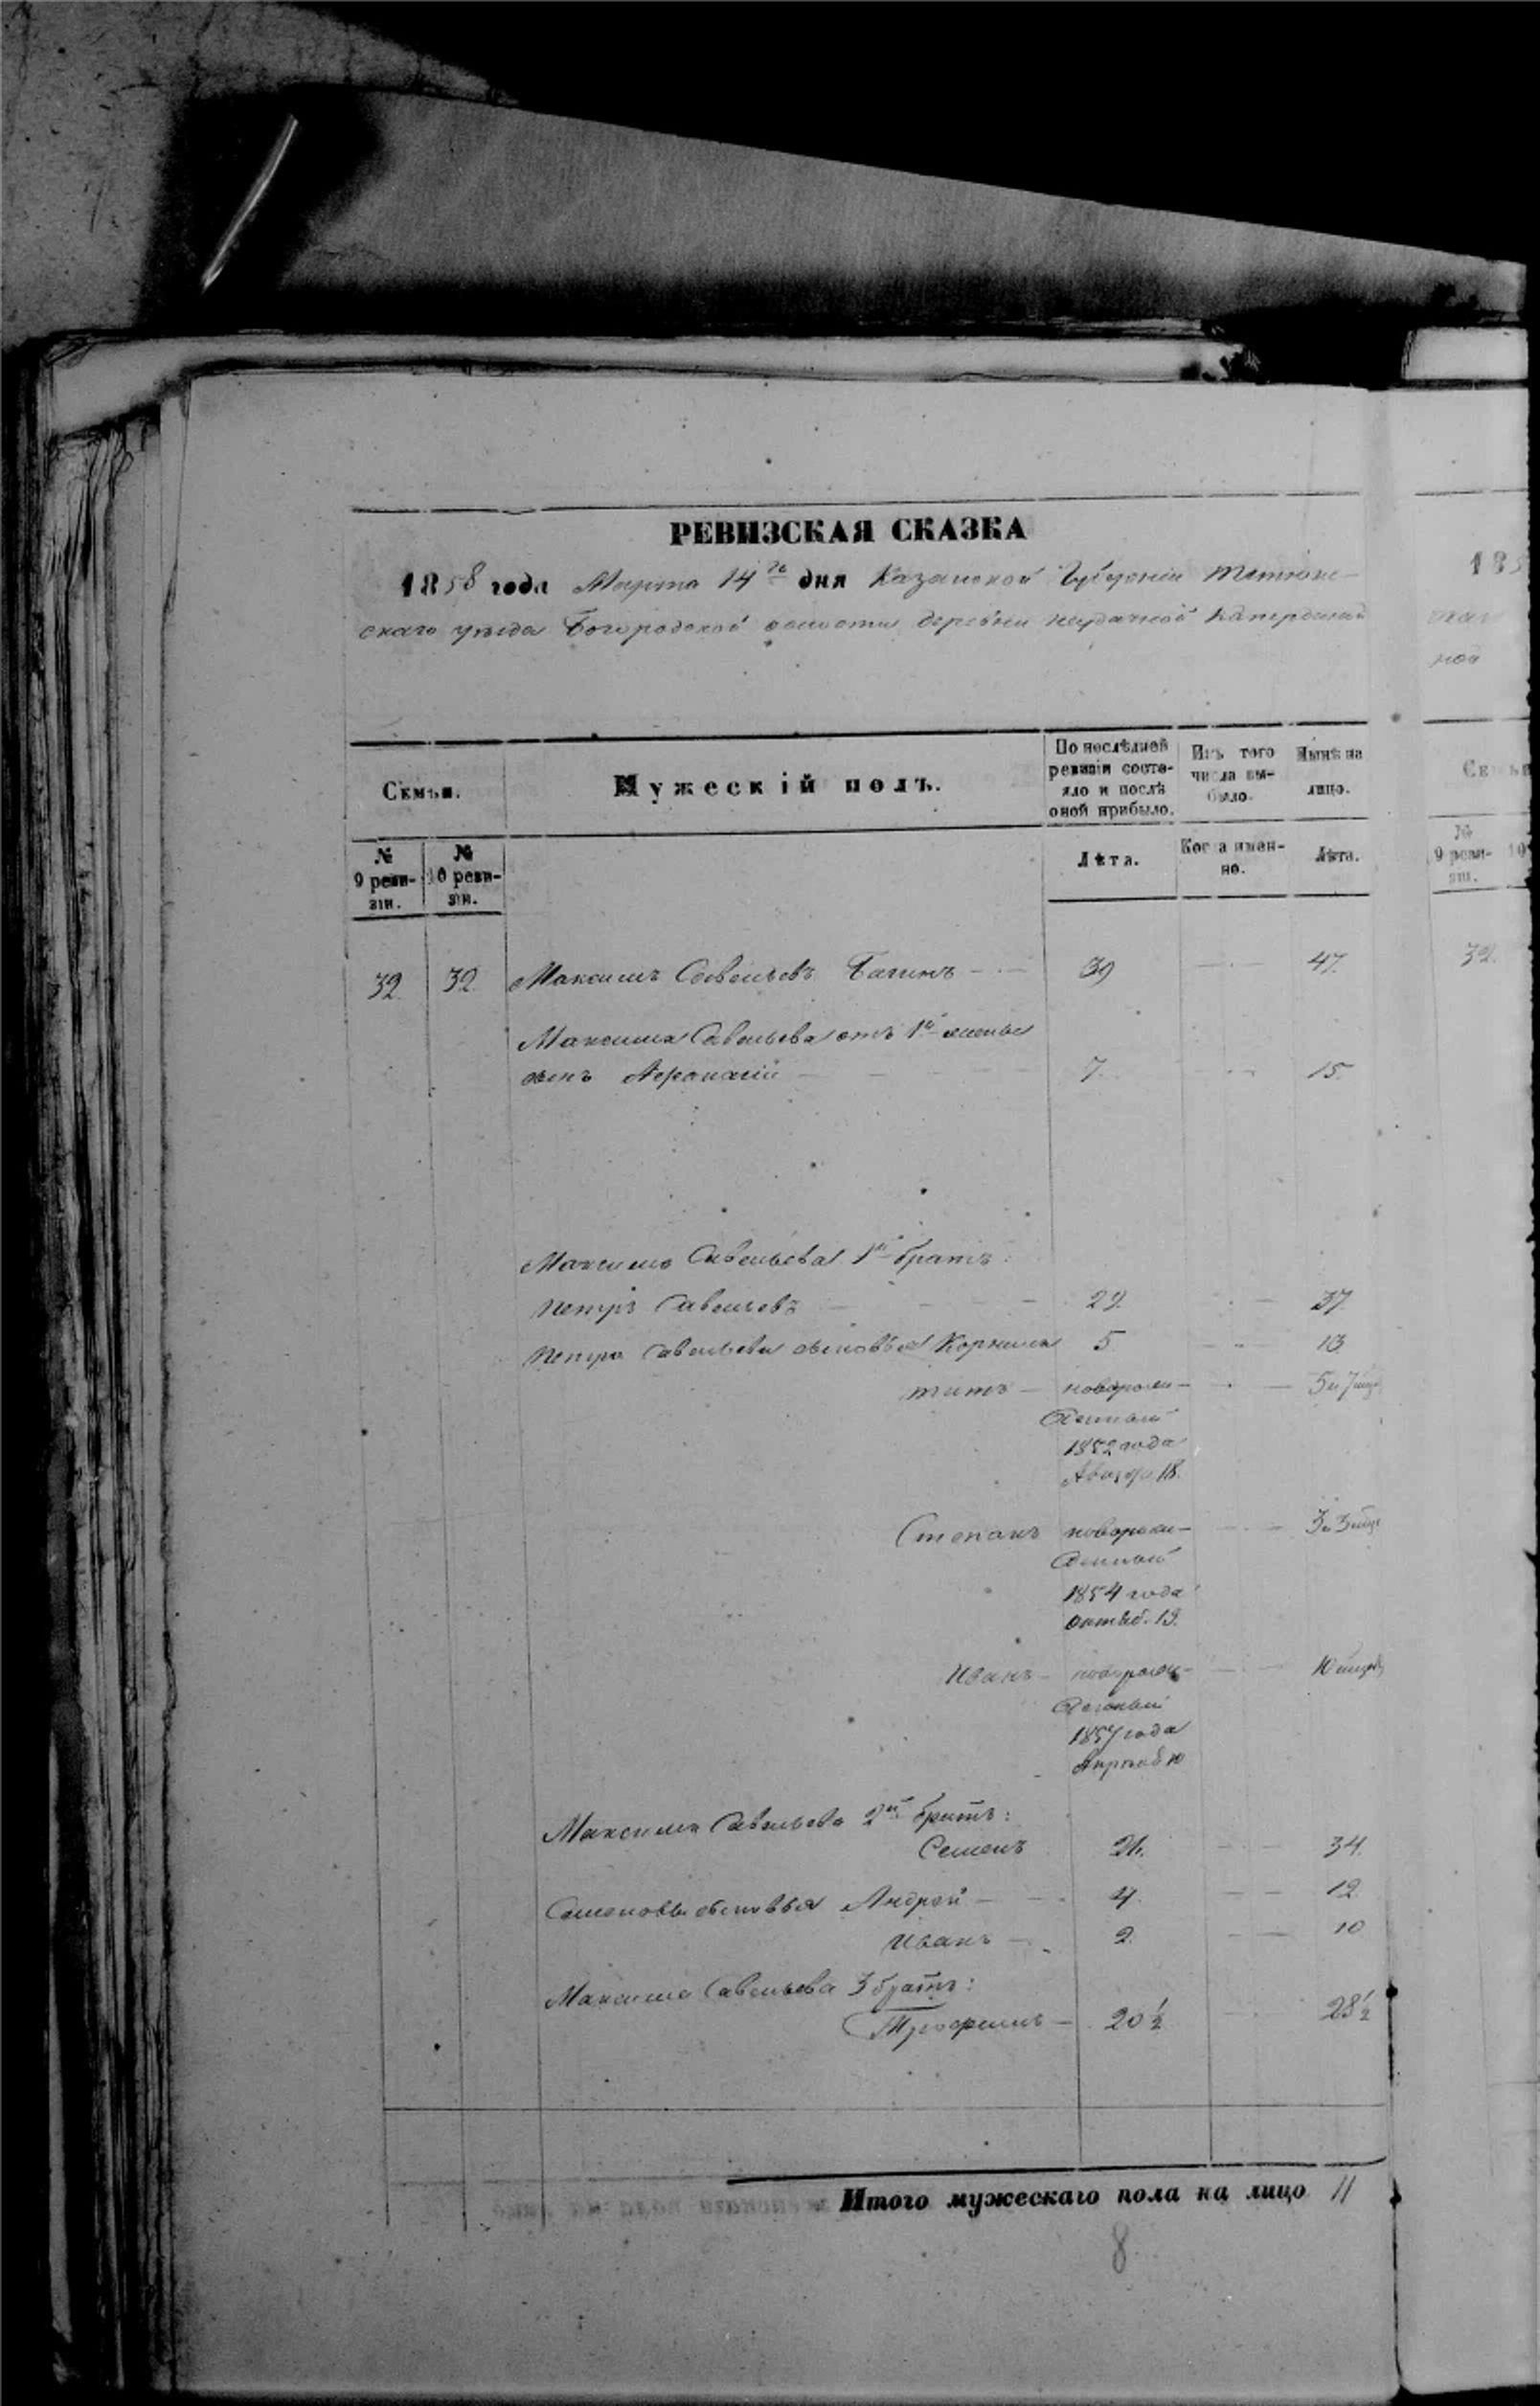 РЕВИЗСКАЯ СКАЗКА
1858 года Марта 14го дня Казанской Губернии Тетюш-
скаго уѣзда Богородской волости деревни
Семьи.
Мужескій полъ.
По послѣдней ревизіи состо-яло и послѣ оной прибыло.
Изъ того числа вы-было.
Нынѣ на лицо.
№ 9 реви-зіи.
№ 10 реви-зіи.
Лѣта.
Когда имен-но.
Лѣта.
32. 32. Максимъ Савельевъ Багинъ 39 47.
Максима Савельева отъ 1й жены
сынъ Афанасій 7. 15.
Максима Савельева 1й братъ:
Петръ Савельевъ 29. 37.
Петра Савельева сыновья Корнила 5 13
Титъ новорож- 5 и 7
денный
1852 года
18.
Степанъ новорож- 3 и 3
денный
1854 года
Октяб. 13.
Иванъ новорож- 10
денный
1857 года
Максима Савельева 2й братъ:
Семенъ 26. 34.
Семеновы сыновья Андрей 4. 12.
Иванъ 2. 10
Максима Савельева 3 братъ:
Трофимъ 20 ½ 28 ½
Итого мужескаго пола на лицо 11
8
185
32.
№
9 реви-
зіи.